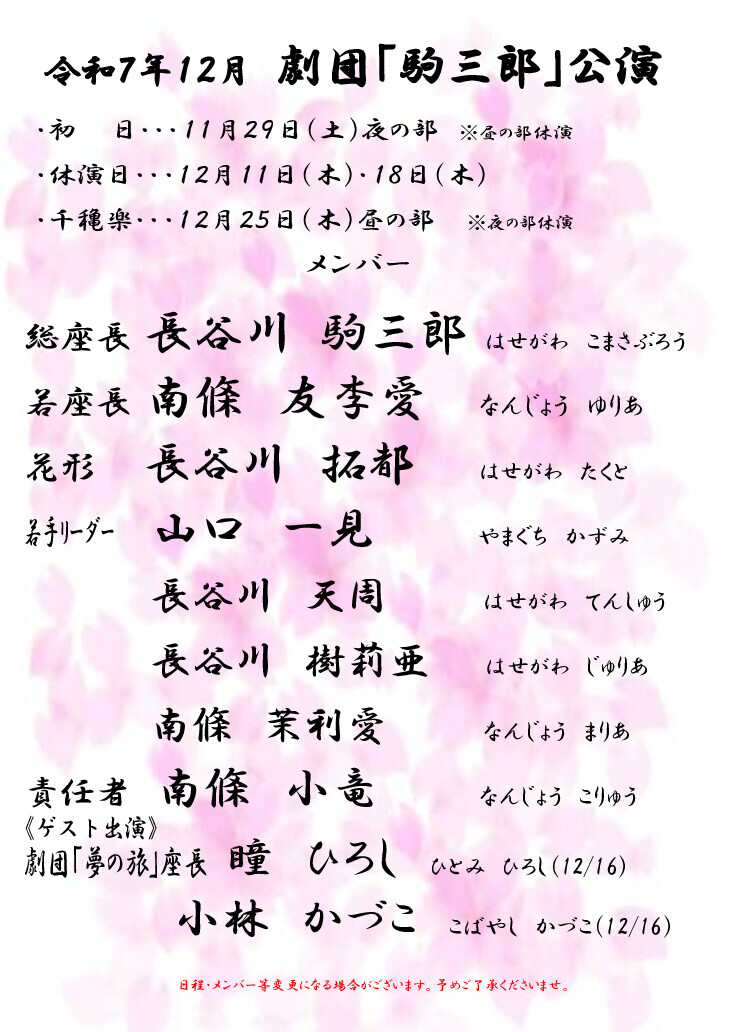 令和7年12月 劇団「駒三郎」公演
・初 日・・・11月29日(土)夜の部 ※昼の部休演
・休演日・・・12月11日(木)・18日(木)
・千穐楽・・・12月25日(木)昼の部 ※夜の部休演
メンバー
総座長 長谷川 駒三郎 はせがわ こまさぶろう
若座長 南條 友李愛 なんじょう ゆりあ
花形 長谷川 拓都 はせがわ たくと
若手リーダー 山口 一見 やまぐち かずみ
長谷川 天周 はせがわ てんしゅう
長谷川 樹莉亜 はせがわ じゅりあ
南條 茉利愛 なんじょう まりあ
責任者 南條 小竜 なんじょう こりゅう
《ゲスト出演》
劇団「夢の旅」座長 瞳 ひろし ひとみ ひろし(12/16)
小林 かづこ こばやし かづこ(12/16)
日程・メンバー等変更になる場合がございます。予めご了承くださいませ。